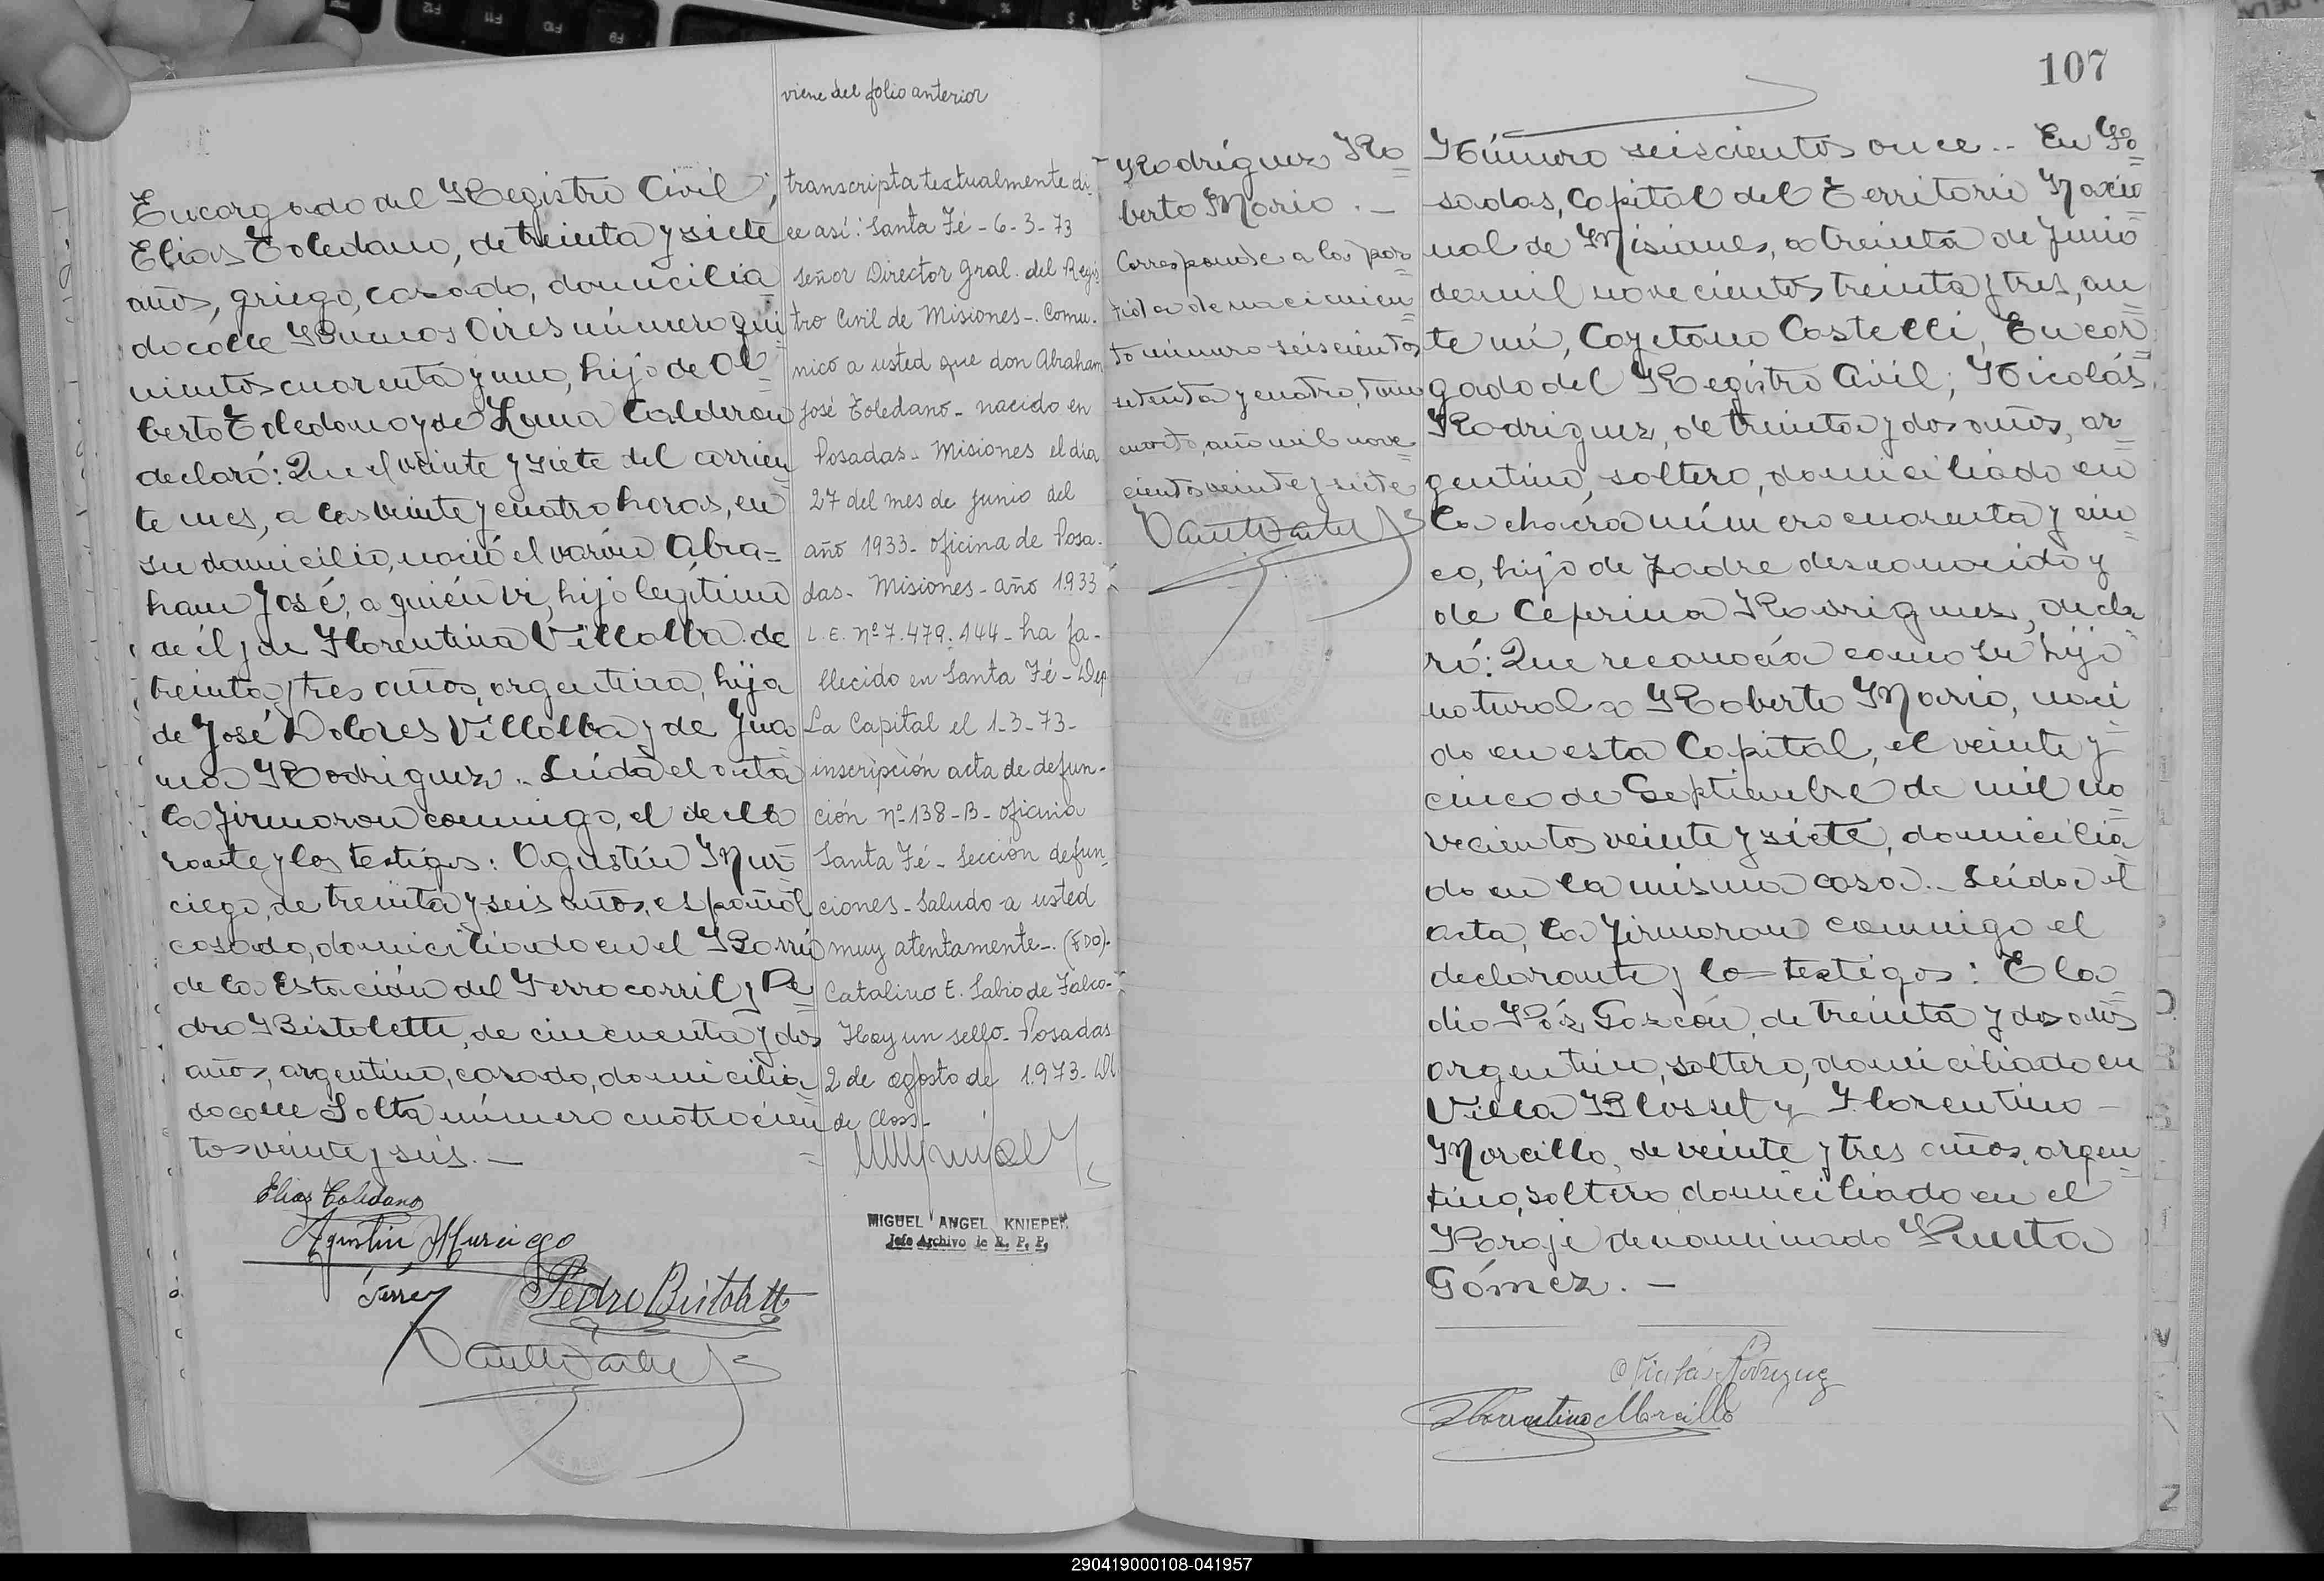 Encargado del Registro Civil;
Elias Toledano, de treinta y siete
años, griego, casado, domicilia
do calle Buenos Aires número qui
nientos cuarenta y uno, hijo de Al
berto Toledano y de Luna Calderon
declaró: Que el veinte y siete del corrien
te mes, a las veinte y cuatro horas, en
su domicilio, nació el varón Abra=
ham José, a quién vi, hijo legítimo
de él y de Florentina Villalba de
treinta y tres años, argentina, hija
de José Dolores Villalba y de Jua
na Rodriguez.. Leída el acta
la firmaron conmigo, el decla
rante y los testigos: Agustín Mur
ciego, de treinta y seis años, español
casado, domiciliado en el Barrio
de la Estación del Ferrocarril y Pe
dro Bistoletti, de cincuenta y dos
años, argentino, casado, domicilia
do calle Salta número cuatrocien
tos veinte y seis.—
Elias Toledano
Agustin Murciego
Pedro Bistoletti
viene del folio anterior
transcripta textualmente di
ce así: Santa Fé - 6-3-73
señor Director Gral. del Regis
tro Civil de Misiones-. Comu.
nico a usted que don Abraham
José Toledano - nacido en
Posadas - Misiones el día
27 del mes de junio del
año 1933 - oficina de Posa.
das - Misiones - año 1933
L.E. nº 7.479.144 - ha fa-
llecido en Santa Fé - Dep
La Capital el 1-3-73-
inscripción acta de defun-
ción nº 138-B- oficina
Santa Fé - Sección defun
ciones - Saludo a usted
muy atentamente-. (FDO)-
Catalino E. Sabio de Falco-
Hay un sello - Posadas
2 de agosto de 1.973-
de Closs-
MIGUEL ANGEL KNIEPER
Jefe Archivo de R. P. P.
107
Rodríguez Ro
berto Mario.—
Corresponde a la par
tida de nacimien
to número seiscientos
setenta y cuatro, tomo
cuarto, año mil nove
cientos veinte y siete
Número seiscientos once.. En Po
sadas, Capital del Territorio Nacio
nal de Misiones, a treinta de Junio
de mil novecientos treinta y tres, an
te mí, Cayetano Castelli, Encar
gado del Registro Civil; Nicolás
Rodriguez, de treinta y dos años, ar
gentino, soltero, domiciliado en
la chacra número cuarenta y cin
co, hijo de padre desconocido y
de Ceferina Rodriguez, decla
ró: Que reconocía como su hijo
natural a Roberto Mario, naci
do en esta Capital, el veinte y
cinco de Septiembre de mil no
vecientos veinte y siete, domicilia
do en la misma casa.. Leída el
acta, la firmaron conmigo el
declarante y los testigos: Ela
dio Póz Gazcón, de treinta y dos años
argentino, soltero, domiciliado en
Villa Blosset y Florentino
Morcillo, de veinte y tres años, argen
tino, soltero, domiciliado en el
Paraje denominado Punta
Gómez.—
Nicolás Rodriguez
Florentino Morcillo
290419000108-041957